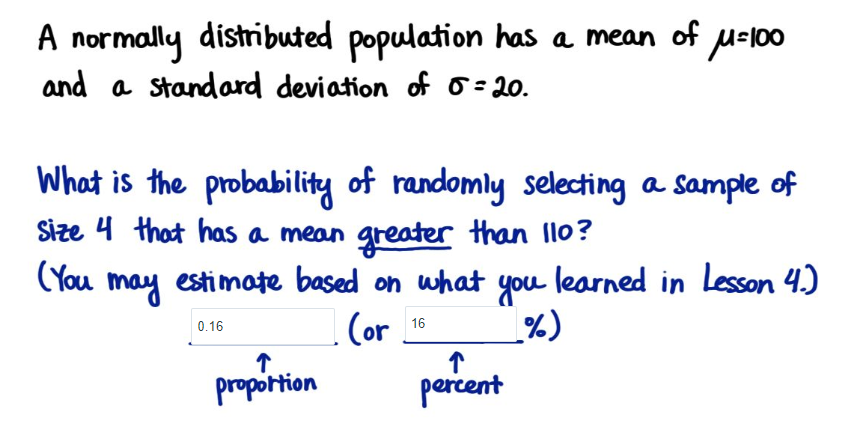 A normally distributed population has a mean of μ=100
and a standard deviation of σ=20.
What is the probability of randomly selecting a sample of
size 4 that has a mean greater than 110?
(You may estimate based on what you learned in Lesson 4.)
0.16 (or 16 %)
↑ ↑
proportion percent